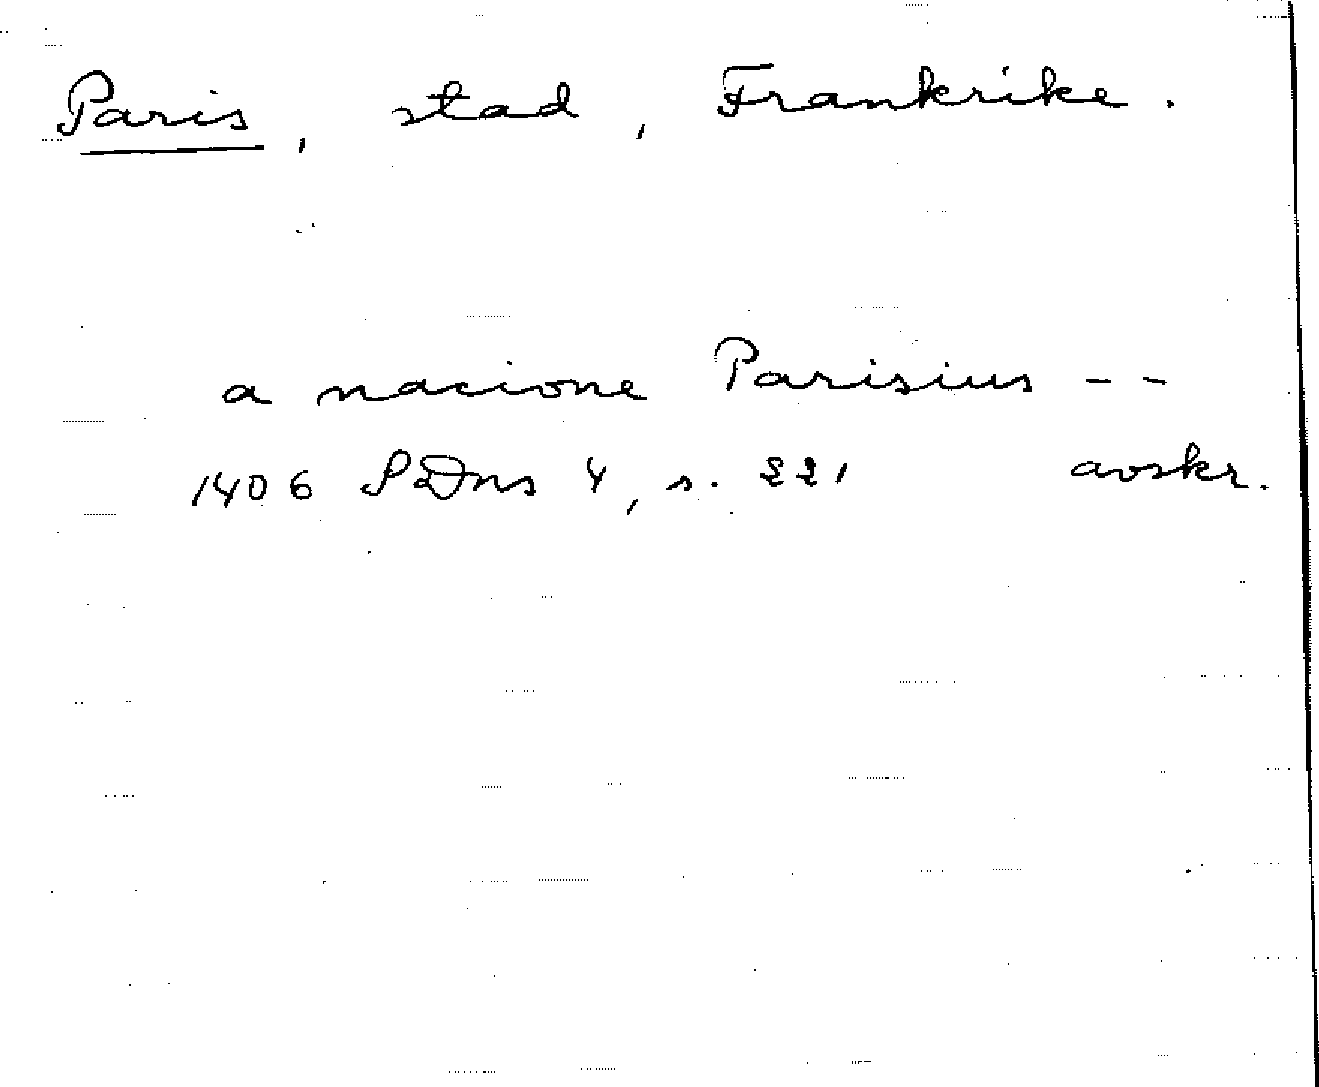 Paris, stad, Frankrike.
a nacione Parisius --
1406 SDns 4, s. 221 avskr.